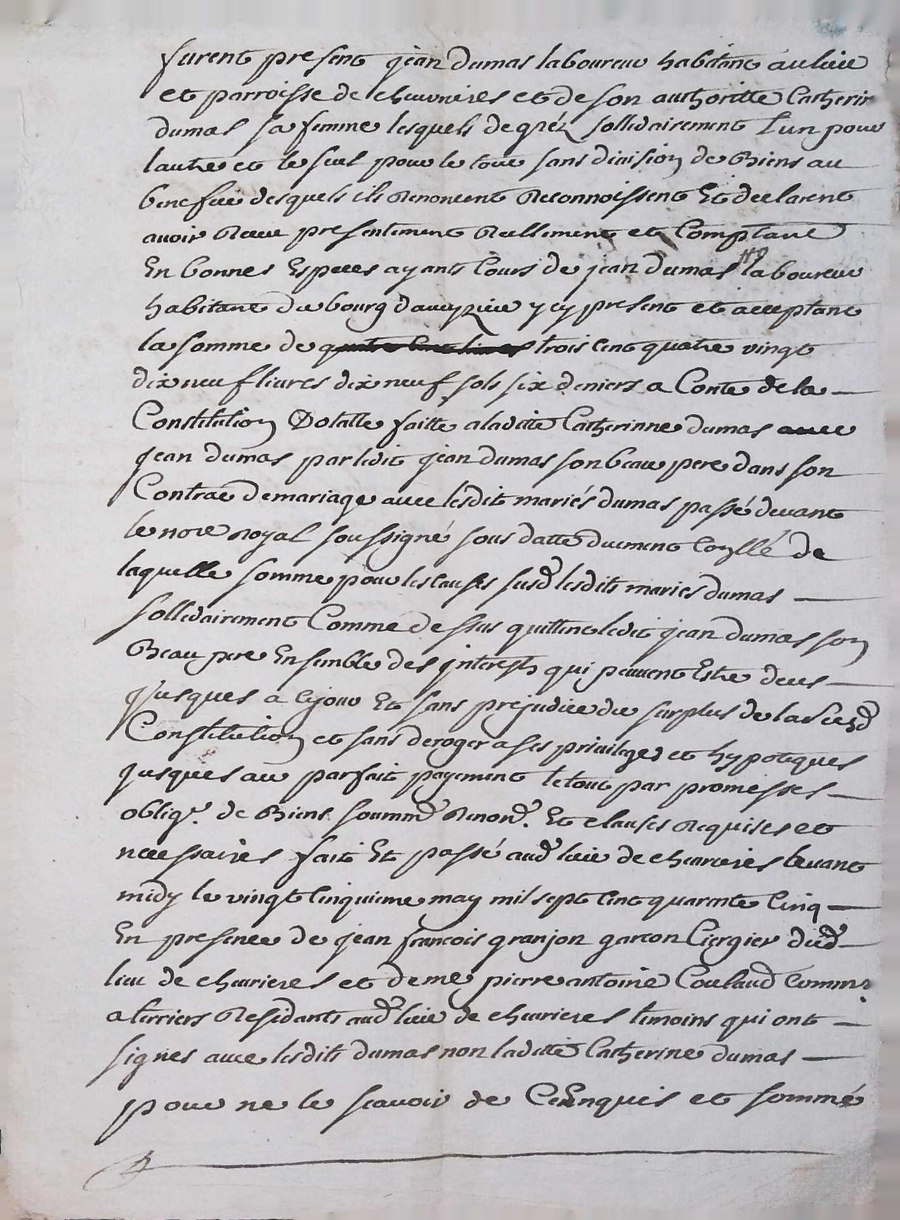 furent present jean dumas laboureur habitant au lieu
et parroisse de chevrieres et de son authoritte Catherin
dumas sa femme lesquels de grez sollidairement l'un pour
lautre et le seul pour le tout sans division de Biens au
benefice desquels ils Renoncent Reconnoissent Et declarent
avoir Receu presentement Reellement et Comptant
En bonnes Especes ayants Cours de jean dumas laboureur
habitant du bourg d'aveyzieu y cy present et acceptant
la somme de trois cent quatre vingt
dix neuf livres dix neuf sols six deniers a Conte de la
Constitution Dotalle faitte a laditte Catherinne dumas
jean dumas par ledit jean dumas son beau pere dans son
Contrat de mariage avec lesdit mariés dumas passé devant
le no.re royal soussigné sous datte duement Coyllé de
laquelle somme pour les causes susd. lesdits mariés dumas
sollidairement Comme dessus quittent ledit jean dumas son
Beau pere Ensemble des interests qui peuvent Estre deus
jusques a ce jour Et sans prejudice du surplus de la susd.
Constitution et sans deroger a ses privileges et hypoteques
jusques au parfait payement le tout par promesses
oblig.on de Biens soummi.on Renon.on Et clauses Requises et
necessaires fait Et passé aud. lieu de chevrieres levant
midy le vingt Cinquieme may mil sept Cent quarente Cinq
En presence de jean francois granjon garcon Ciergier dud.
lieu de chevrieres et de me pierre antoine Coulaud Commis
a terriers Residants aud. lieu de chevrieres temoins qui ont
signes avec lesdits dumas non laditte Catherine dumas
pour ne le scavoir de Ce Enquis et sommé